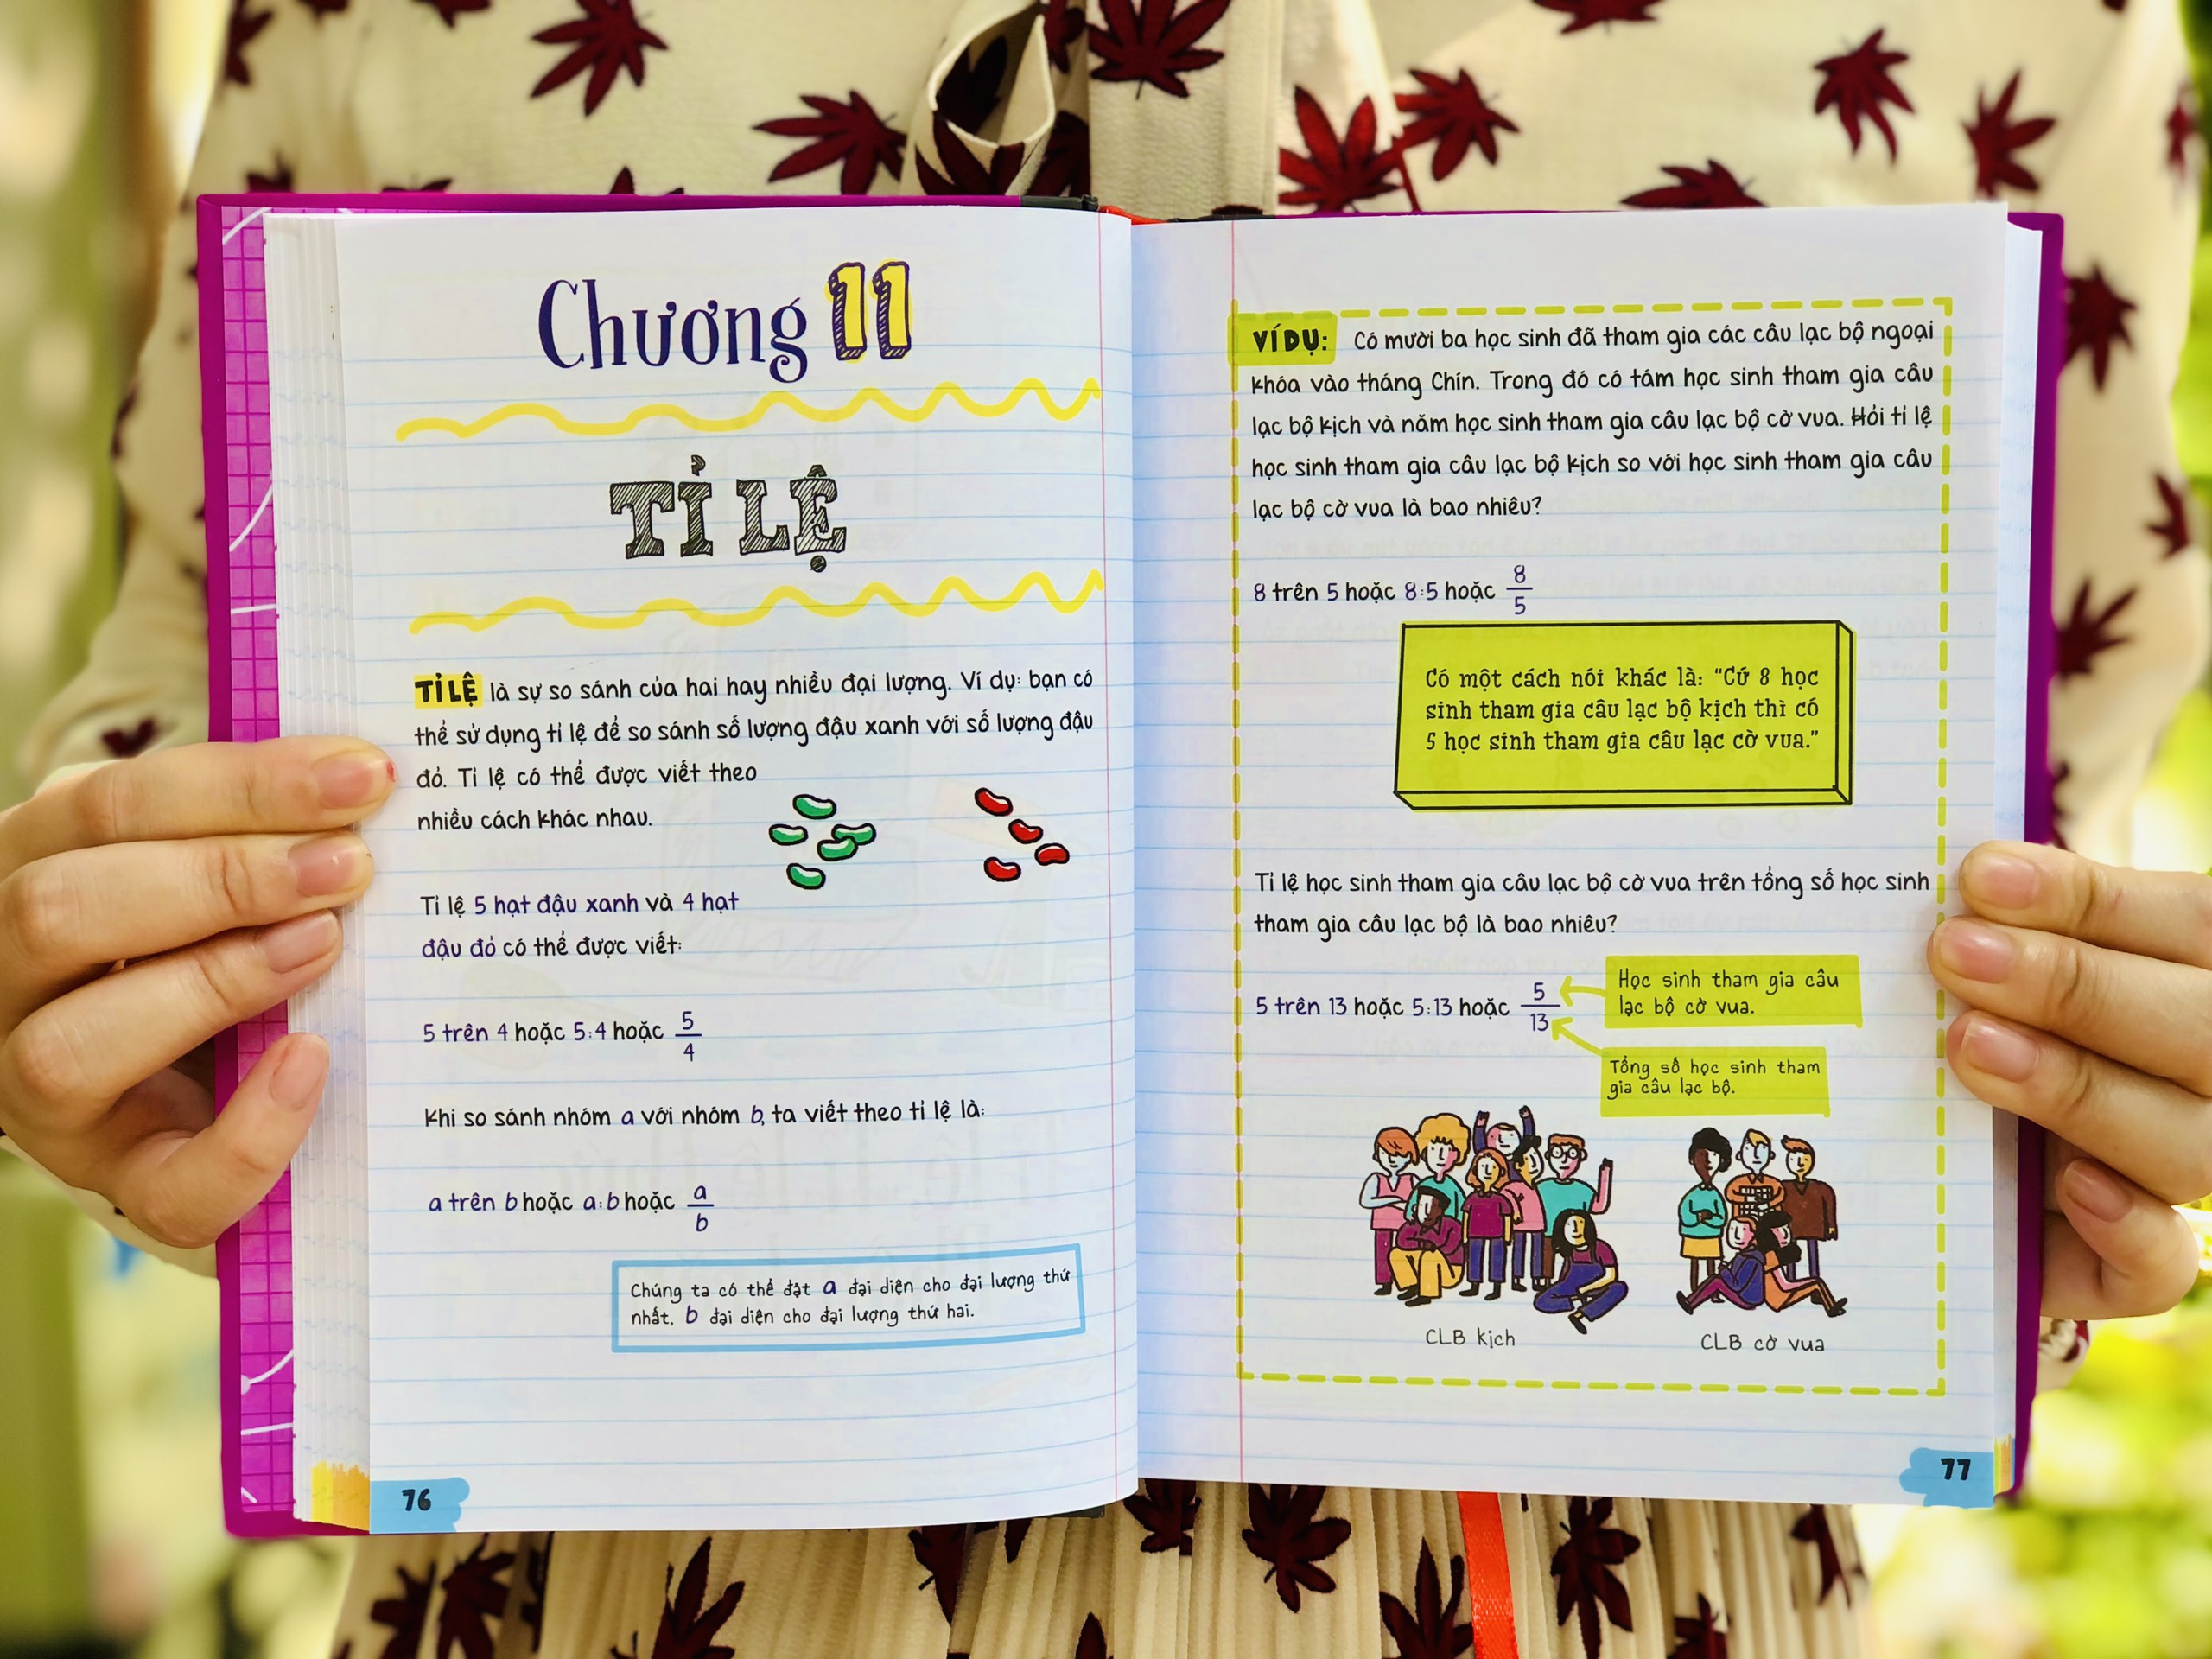 Chương 11
TỈ LỆ
TỈ LỆ là sự so sánh của hai hay nhiều đại lượng. Ví dụ: bạn có
thể sử dụng tỉ lệ để so sánh số lượng đậu xanh với số lượng đậu
đỏ. Tỉ lệ có thể được viết theo
nhiều cách khác nhau.
Tỉ lệ 5 hạt đậu xanh và 4 hạt
đậu đỏ có thể được viết:
5 trên 4 hoặc 5:4 hoặc 5/4
Khi so sánh nhóm a với nhóm b, ta viết theo tỉ lệ là:
a trên b hoặc a:b hoặc a/b
Chúng ta có thể đặt a đại diện cho đại lượng thứ
nhất, b đại diện cho đại lượng thứ hai.
76
VÍ DỤ: Có mười ba học sinh đã tham gia các câu lạc bộ ngoại
khóa vào tháng Chín. Trong đó có tám học sinh tham gia câu
lạc bộ kịch và năm học sinh tham gia câu lạc bộ cờ vua. Hỏi tỉ lệ
học sinh tham gia câu lạc bộ kịch so với học sinh tham gia câu
lạc bộ cờ vua là bao nhiêu?
8 trên 5 hoặc 8:5 hoặc 8/5
Có một cách nói khác là: “Cứ 8 học
sinh tham gia câu lạc bộ kịch thì có
5 học sinh tham gia câu lạc cờ vua.”
Tỉ lệ học sinh tham gia câu lạc bộ cờ vua trên tổng số học sinh
tham gia câu lạc bộ là bao nhiêu?
5 trên 13 hoặc 5:13 hoặc 5/13
Học sinh tham gia câu
lạc bộ cờ vua.
Tổng số học sinh tham
gia câu lạc bộ.
CLB kịch
CLB cờ vua
77